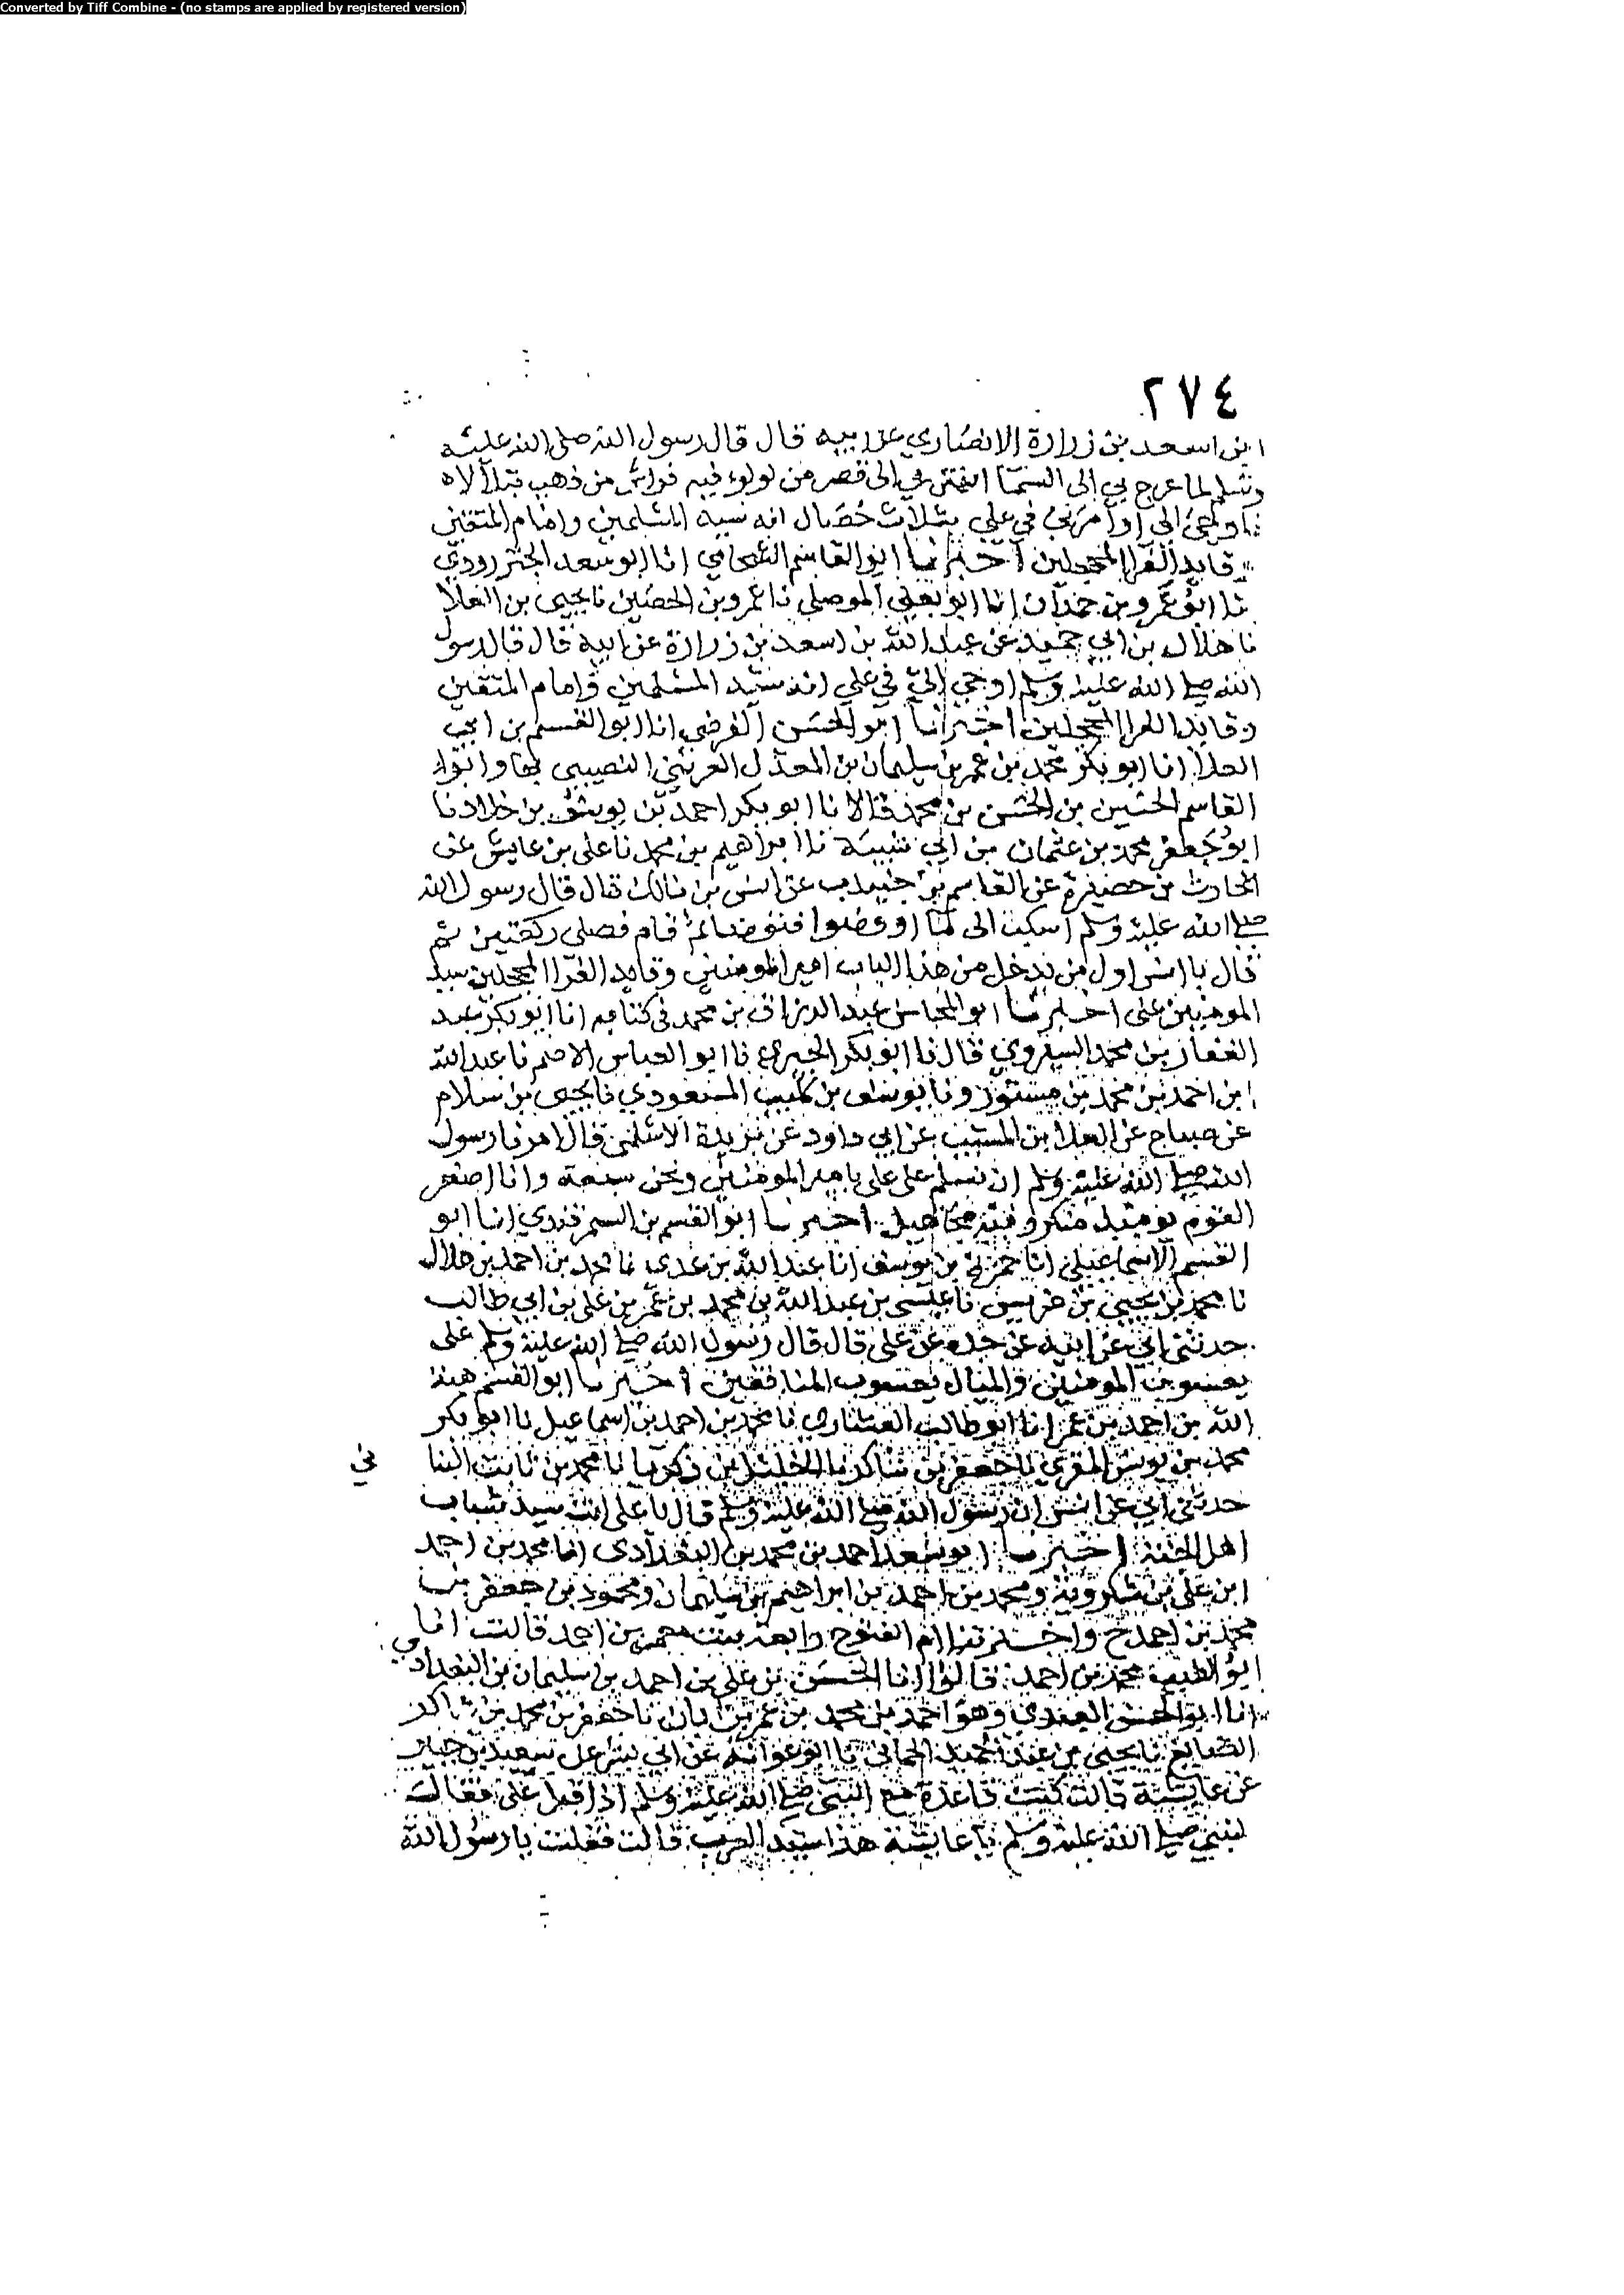 Converted by Tiff Combine - (no stamps are applied by registered version)
٢٧٤
ابن اسعد بن زرارة الانصاري عن ابيه قال قال رسول الله صلى الله عليه
وسلم لما عرج بي الى السما انتهى بي الى قصر من لولوء فيه فراش من ذهب يتلالاه
فاوحي الي او امرني في علي بثلاث خصال انه سيد المسلمين وامام المتقين
وقايد الغر المحجلين اخبرنا ابو القاسم الشحامي انا ابو سعد الجنزرودي
نا ابو عمرو بن حمدان انا ابو يعلى الموصلي نا عمرو بن الحصين نا يحيى بن العلا
نا هلال بن ابي حميد عن عبد الله بن اسعد بن زرارة عن ابيه قال قال رسول
الله صلى الله عليه وسلم اوحي الي في علي انه سيد المسلمين وامام المتقين
وقايد الغر المحجلين اخبرنا ابو الحسن الفرضي انا ابو القسم بن ابي
العلا انا ابو بكر محمد بن عمر بن سليمان بن المعدل العريني النصيبي بها وابو
القاسم الحسين بن الحسن بن محمد قالا نا ابو بكر احمد بن يوسف بن خلاد نا
ابو جعفر محمد بن عثمان بن ابي شيبة نا ابراهيم بن محمد نا علي بن عايش عن
الحارث بن حصيرة عن القاسم بن جندب عن انس بن مالك قال قال رسول الله
صلى الله عليه وسلم اسكب الي ما او وضوا فتوضا ثم قام فصلى ركعتين ثم
قال يا انس اول من يدخل من هذا الباب امير المومنين وقايد الغر المحجلين سيد
المومنين علي اخبرنا ابو المحاسن عبد الرزاق بن محمد في كتابه انا ابو بكر عبد
الغفار بن محمد السيروي قال نا ابو بكر الحيري نا ابو العباس الاصم نا عبد الله
ابن احمد بن محمد بن مستورد نا يوسف بن كليب المسعودي نا يحيى بن سلام
عن صباح عن العلا بن المسيب عن ابي داود عن بريدة الاسلمي قال امرنا رسول
الله صلى الله عليه وسلم ان نسلم على علي يامير المومنين ونحن سبعة وانا اصغر
القوم يوميذ منكر وفيه مجاهيل اخبرنا ابو القسم بن السمرقندي انا ابو
القسم الاسماعيلي انا حمزة بن يوسف انا عبد الله بن عدي نا محمد بن احمد بن هلال
نا محمد بن يحيى بن ضريس نا عيسى بن عبد الله بن محمد بن عمر بن علي بن ابي طالب
حدثني ابي عن ابيه عن جده عن علي قال قال رسول الله صلى الله عليه وسلم علي
يعسوب المومنين والمال يعسوب المنافقين اخبرنا ابو القسم هبة
الله بن احمد بن عمر انا ابو طالب العشاري نا محمد بن احمد بن اسماعيل نا ابو بكر
محمد بن يونس المقري نا جعفر بن شاكر نا الخليل بن زكريا نا محمد بن ثابت البنا ني
حدثني ابي عن انس ان رسول الله صلى الله عليه وسلم قال يا علي انت سيد شباب
اهل الجنة اخبرنا ابو سعد احمد بن محمد بن البغدادي انا محمد بن احمد
ابن علي بن شكرويه ومحمد بن احمد بن ابراهيم بن سليمان ومحمود بن جعفر بن
محمد بن احمد ح واخبرتنا ام الفتوح رابعة بنت معمر بن احمد قالت انا
ابو الطيب محمد بن احمد قالوا انا الحسن بن علي بن احمد بن سليمان بن البغدادي
انا ابو الحسن العبدي وهو احمد بن محمد بن عمر بن ابان نا جعفر بن محمد بن شاكر
الصايغ نا يحيى بن عبد الحميد الحماني نا ابو عوانة عن ابي بشر عن سعيد بن جبير
عن عايشة قالت كنت قاعدة مع النبي صلى الله عليه وسلم اذ اقبل علي فقال
لنبي صلى الله عليه وسلم يا عايشة هذا سيد العرب قالت فقلت يا رسول الله